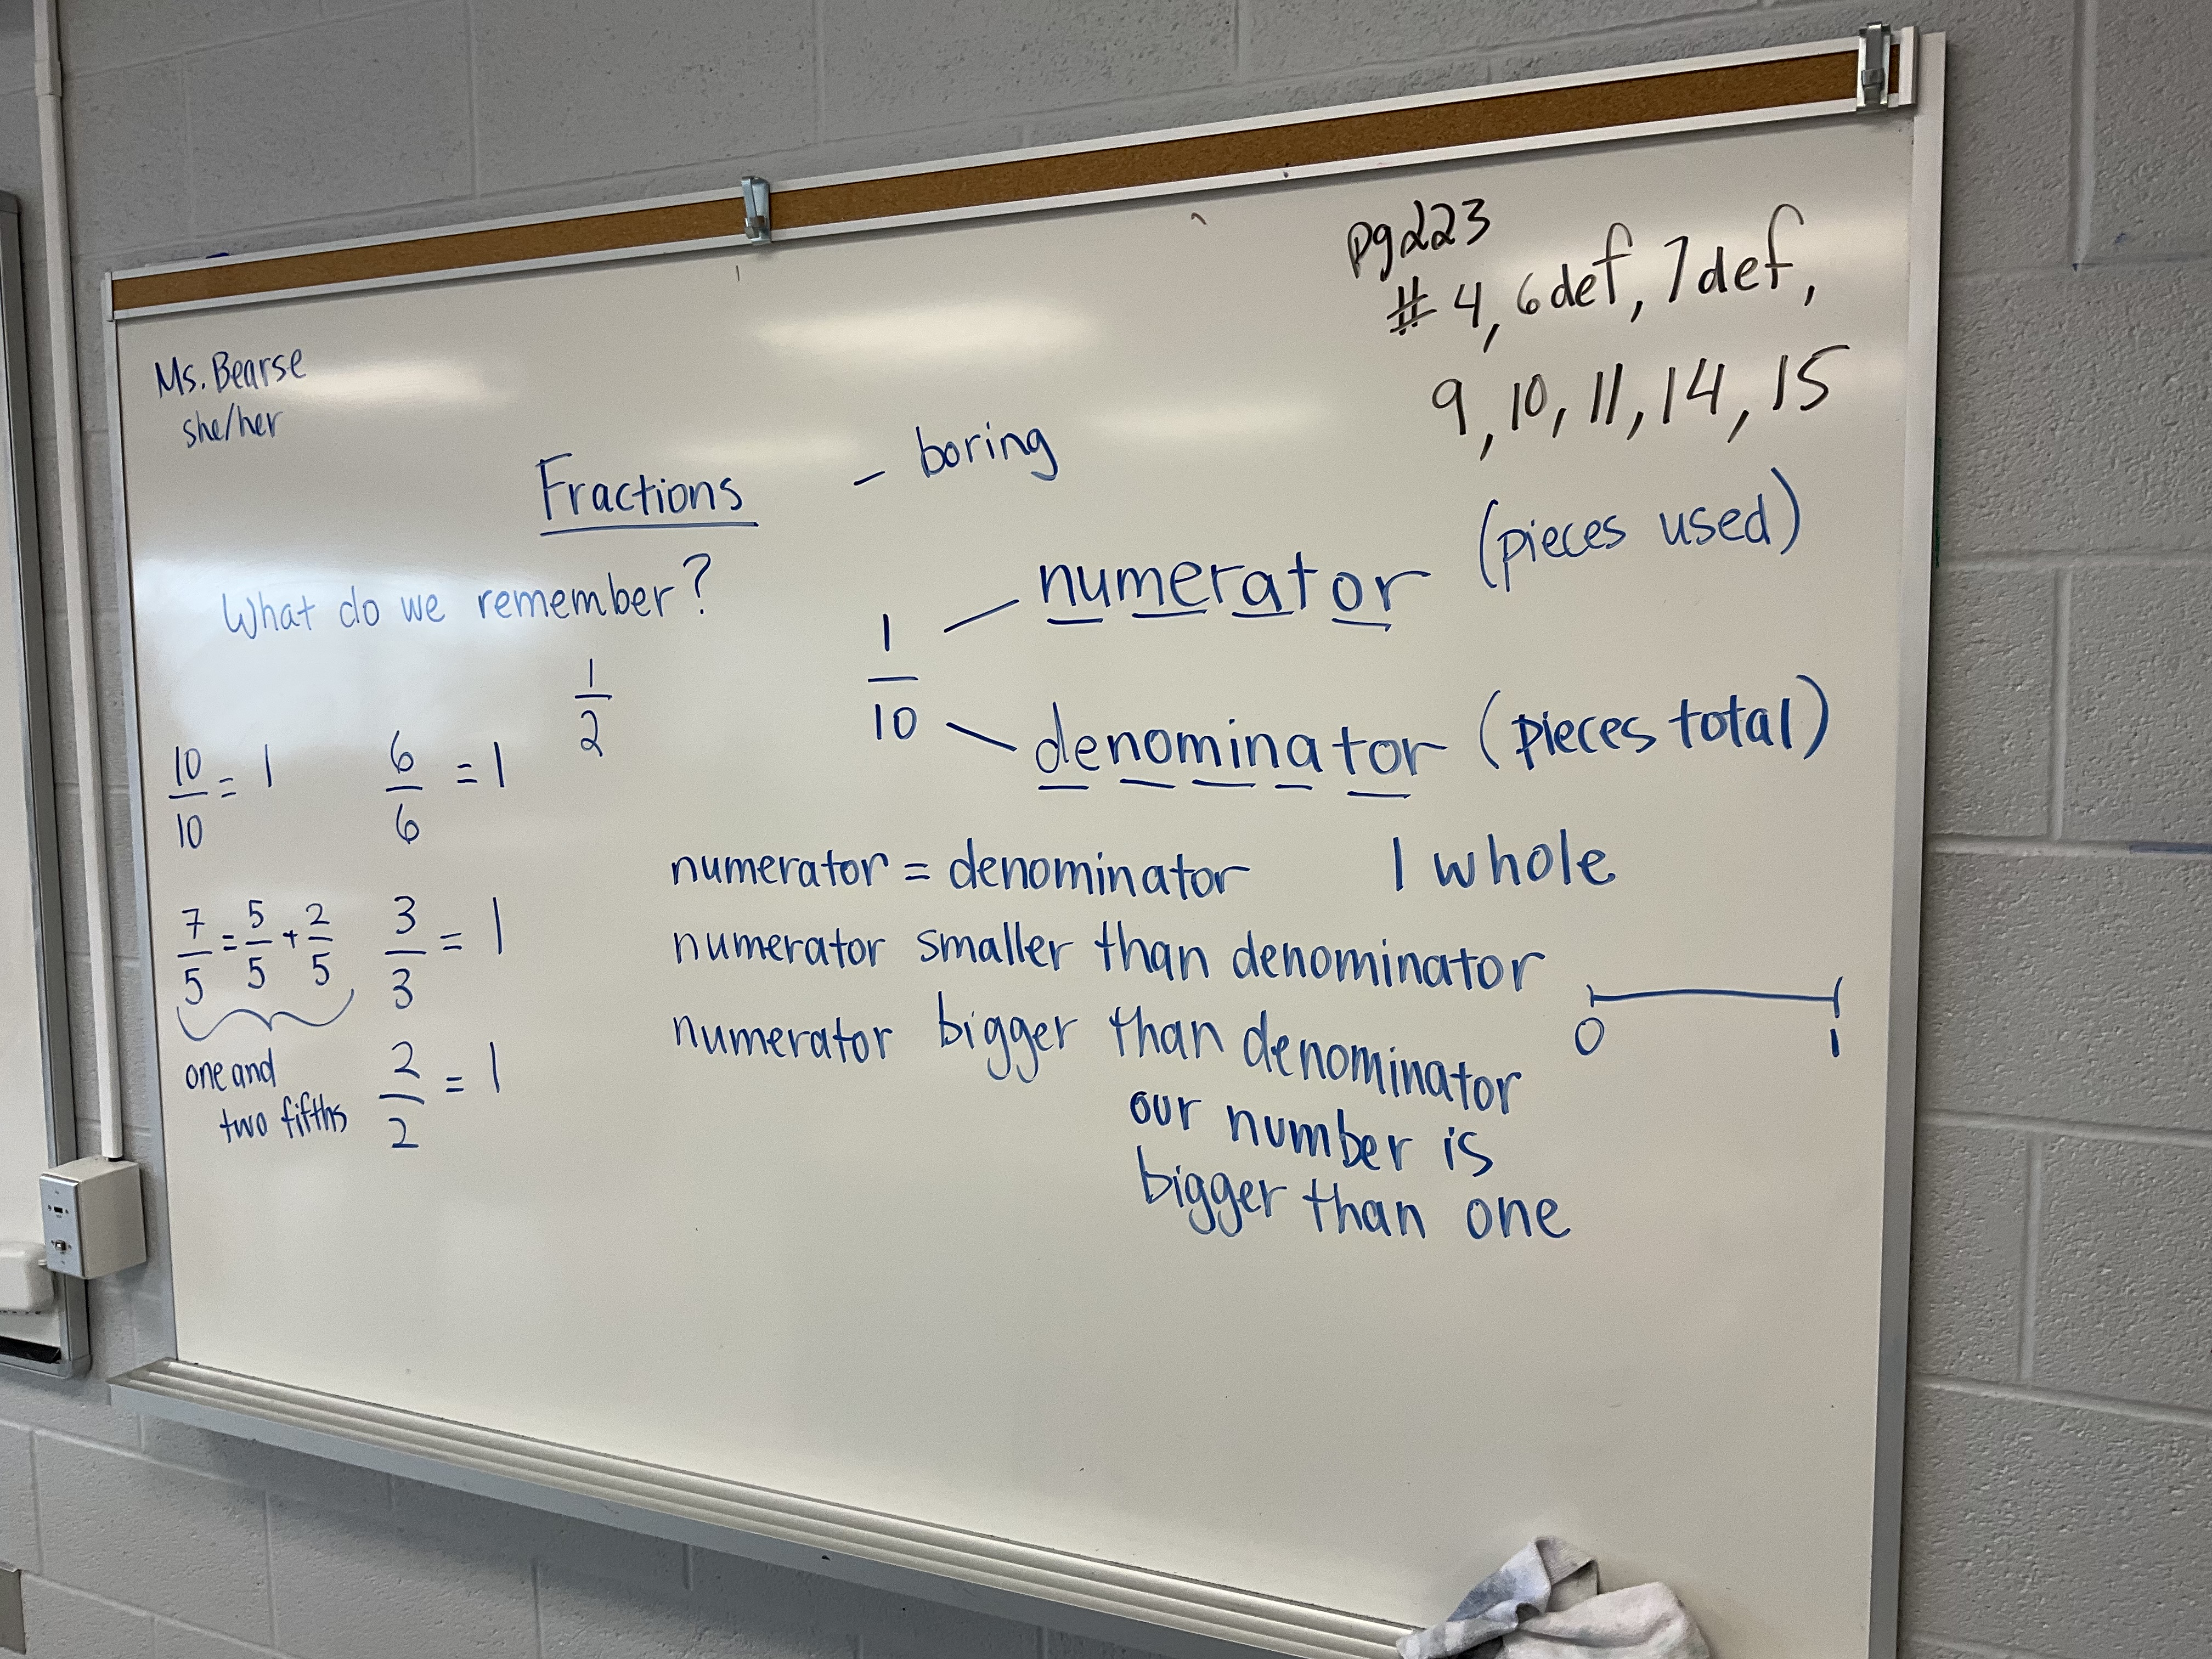 pg 223
# 4, 6def, 7def,
9, 10, 11, 14, 15
Ms. Bearse
she/her
Fractions
- boring
What do we remember?
1/2
1/10
numerator (pieces used)
denominator (pieces total)
10/10 = 1
6/6 = 1
7/5 = 5/5 + 2/5
3/3 = 1
one and
two fifths
2/2 = 1
numerator = denominator 1 whole
numerator smaller than denominator
0 1
numerator bigger than denominator
our number is
bigger than one